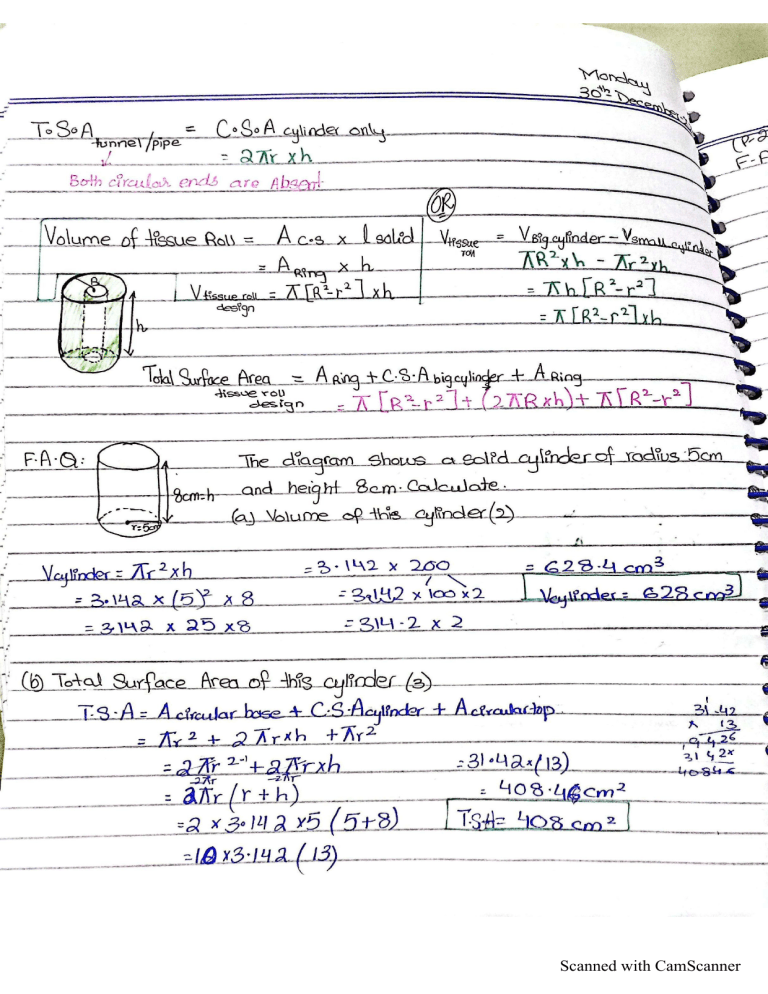 Monday
30th December
T.S.A tunnel/pipe = C.S.A cylinder only
= 2πr xh
Both circular ends are Absent
(P-2
F-F
OR
Volume of tissue Roll = A c.s x l solid
= A Ring x h
V tissue roll design = π[R²-r²] xh
R
h
V tissue roll = V Big cylinder - V small cylinder
πR²xh - πr²xh
= πh[R²-r²]
= π[R²-r²]xh
Total Surface Area tissue roll design = A Ring + C.S.A big cylinder + A Ring
= π[R²-r²] + (2πR xh) + π[R²-r²]
F.A.Q:
8cm=h
r=5cm
The diagram shows a solid cylinder of radius 5cm
and height 8cm. Calculate.
(a) Volume of this cylinder (2)
Vcylinder = πr²xh
= 3.142 x (5)² x 8
= 3.142 x 25 x8
= 3.142 x 200
= 3.142 x 100 x2
= 314.2 x 2
= 628.4 cm³
Vcylinder = 628 cm³
(b) Total Surface Area of this cylinder (3)
T.S.A = A circular base + C.S.A cylinder + A circular top
= πr² + 2πrxh + πr²
= 2πr²⁻¹ + 2πrxh
2πr 2πr
= 2πr (r + h)
= 2 x 3.142 x5 (5+8)
= 10 x3.142 (13)
= 31.42x(13)
= 408.46cm²
T.S.A= 408 cm²
1
31.42
x 13
9426
3142x
40846
Scanned with CamScanner